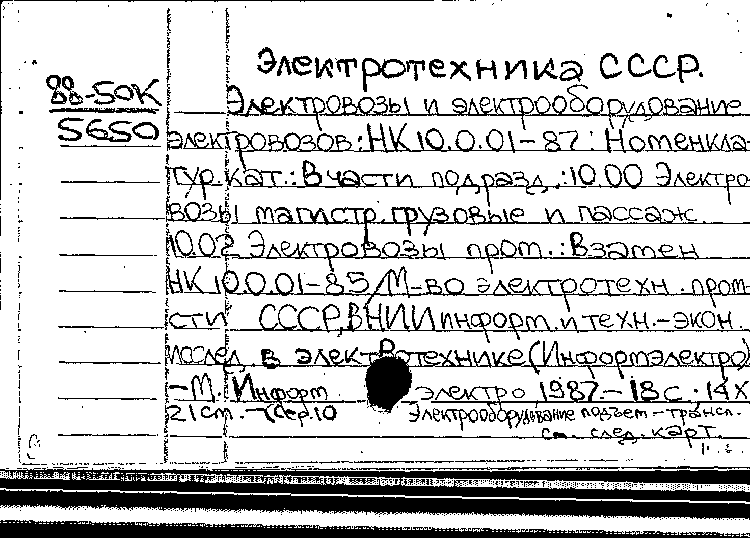 Электротехника СССР.
88-50К
5650
Электровозы и электрооборудование
электровозов: НК 10.0.01-87: Номенкла-
тур. кат.: В части подразд.: 10.00 Электро-
возы магистр. грузовые и пассаж.
10.02 Электровозы пром.: Взамен
НК 10.0.01-85/М-во электротехн. пром-
сти СССР, ВНИИ информ. и техн.-экон.
исслед. в электротехнике (Информэлектро)
-М.: Информэлектро, 1987.-18с.; 14х
21см.-(Сер.10 Электрооборудование подъем-трансп.
см. след. карт.